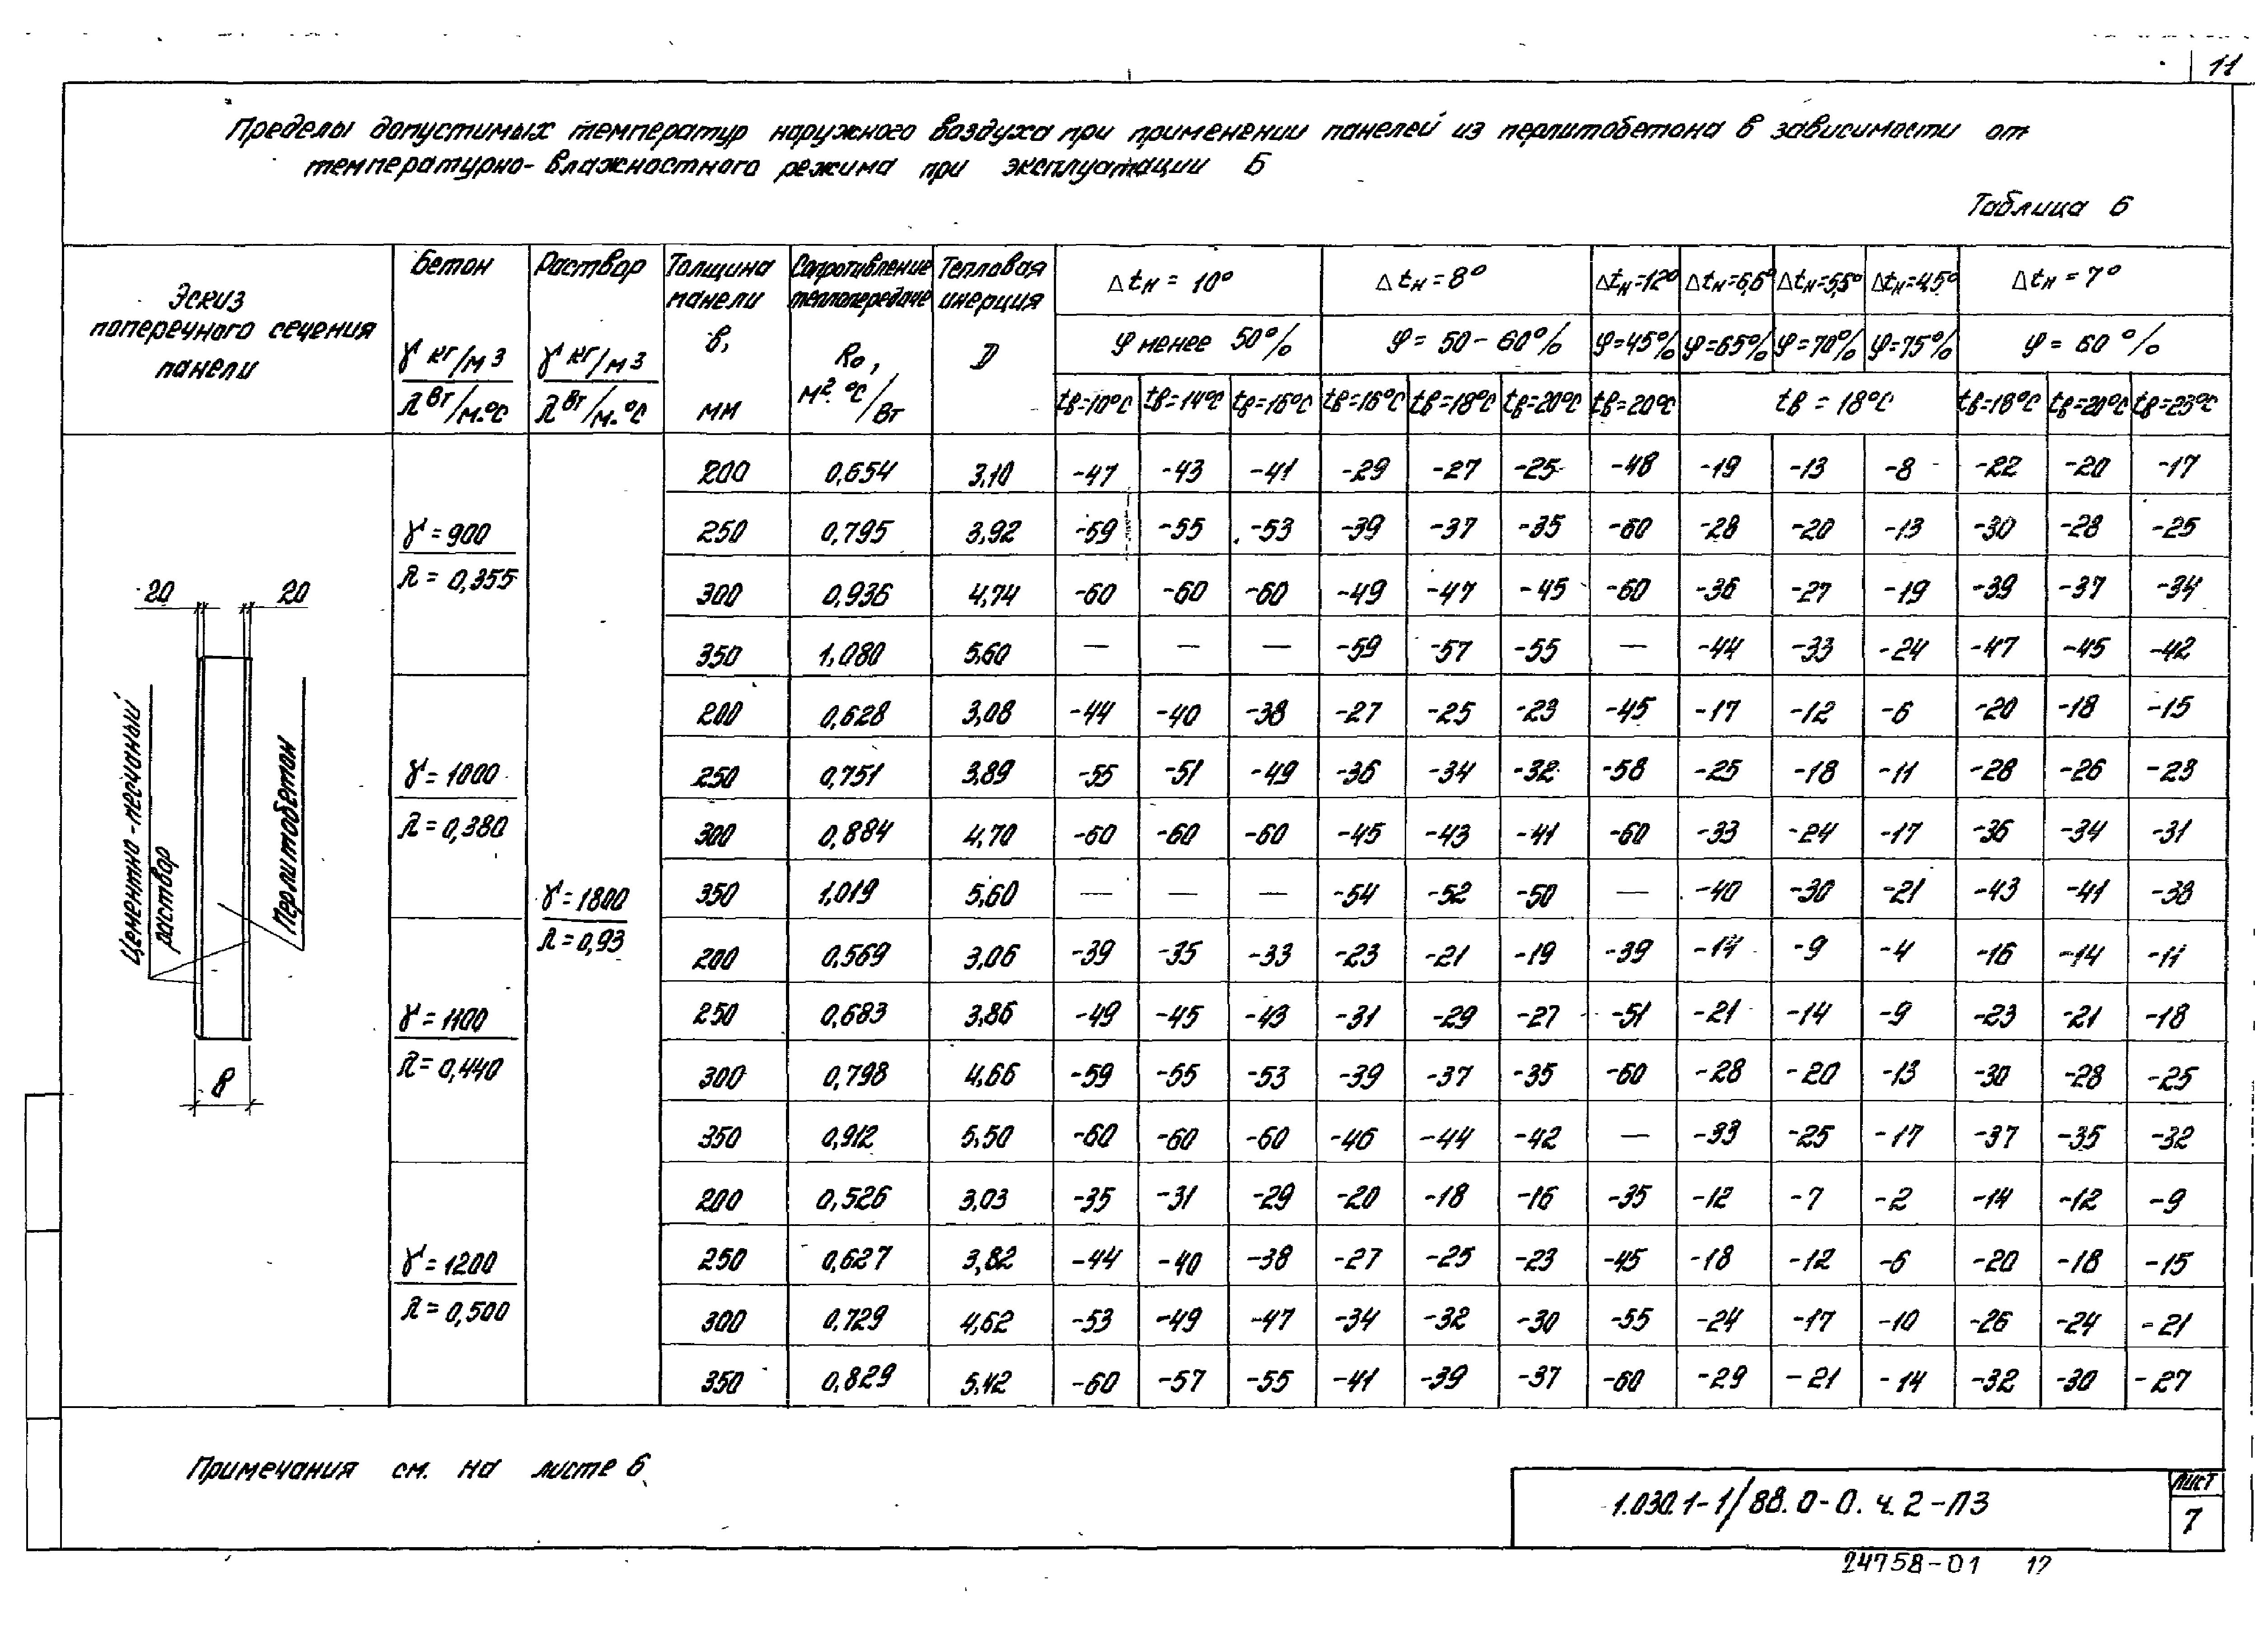 11
Пределы допустимых температур наружного воздуха при применении панелей из перлитобетона в зависимости от
температурно-влажностного режима при эксплуатации Б
Таблица 6
Эскиз поперечного сечения панели
Бетон γ кг/м3 λ Вт/м.°С
Раствор γ кг/м3 λ Вт/м.°С
Толщина панели в, мм
Сопротивление теплопередаче Rо, м².°С/Вт
Тепловая инерция D
Δtн = 10° Δtн = 8° Δtн=12° Δtн=6,5° Δtн=5,5° Δtн=4,5° Δtн = 7°
φ менее 50% φ = 50 - 60% φ=45% φ=65% φ=70% φ=75% φ = 60 %
tв=10°С tв=14°С tв=16°С tв=16°С tв=18°С tв=20°С tв=20°С tв = 18°С tв=18°С tв=20°С tв=23°С
20 20
Цементно-песчаный раствор
Перлитобетон
в
γ = 1800
λ = 0,93
γ = 900
λ = 0,355
200 0,654 3,10 -47 -43 -41 -29 -27 -25 -48 -19 -13 -8 -22 -20 -17
250 0,795 3,92 -59 -55 -53 -39 -37 -35 -60 -28 -20 -13 -30 -28 -25
300 0,936 4,74 -60 -60 -60 -49 -47 -45 -60 -36 -27 -19 -39 -37 -34
350 1,080 5,60 — — — -59 -57 -55 — -44 -33 -24 -47 -45 -42
γ = 1000
λ = 0,380
200 0,628 3,08 -44 -40 -38 -27 -25 -23 -45 -17 -12 -6 -20 -18 -15
250 0,751 3,89 -55 -51 -49 -36 -34 -32 -58 -25 -18 -11 -28 -26 -23
300 0,884 4,70 -60 -60 -60 -45 -43 -41 -60 -33 -24 -17 -36 -34 -31
350 1,019 5,60 — — — -54 -52 -50 — -40 -30 -21 -43 -41 -38
γ = 1100
λ = 0,440
200 0,569 3,06 -39 -35 -33 -23 -21 -19 -39 -14 -9 -4 -16 -14 -11
250 0,683 3,86 -49 -45 -43 -31 -29 -27 -51 -21 -14 -9 -23 -21 -18
300 0,798 4,66 -59 -55 -53 -39 -37 -35 -60 -28 -20 -13 -30 -28 -25
350 0,912 5,50 -60 -60 -60 -46 -44 -42 — -33 -25 -17 -37 -35 -32
γ = 1200
λ = 0,500
200 0,526 3,03 -35 -31 -29 -20 -18 -16 -35 -12 -7 -2 -14 -12 -9
250 0,627 3,82 -44 -40 -38 -27 -25 -23 -45 -18 -12 -6 -20 -18 -15
300 0,729 4,62 -53 -49 -47 -34 -32 -30 -55 -24 -17 -10 -26 -24 -21
350 0,829 5,42 -60 -57 -55 -41 -39 -37 -60 -29 -21 -14 -32 -30 -27
Примечания см. на листе 6
1.030.1-1/88.0-0.ч.2-ПЗ
Лист
7
24758-01 12